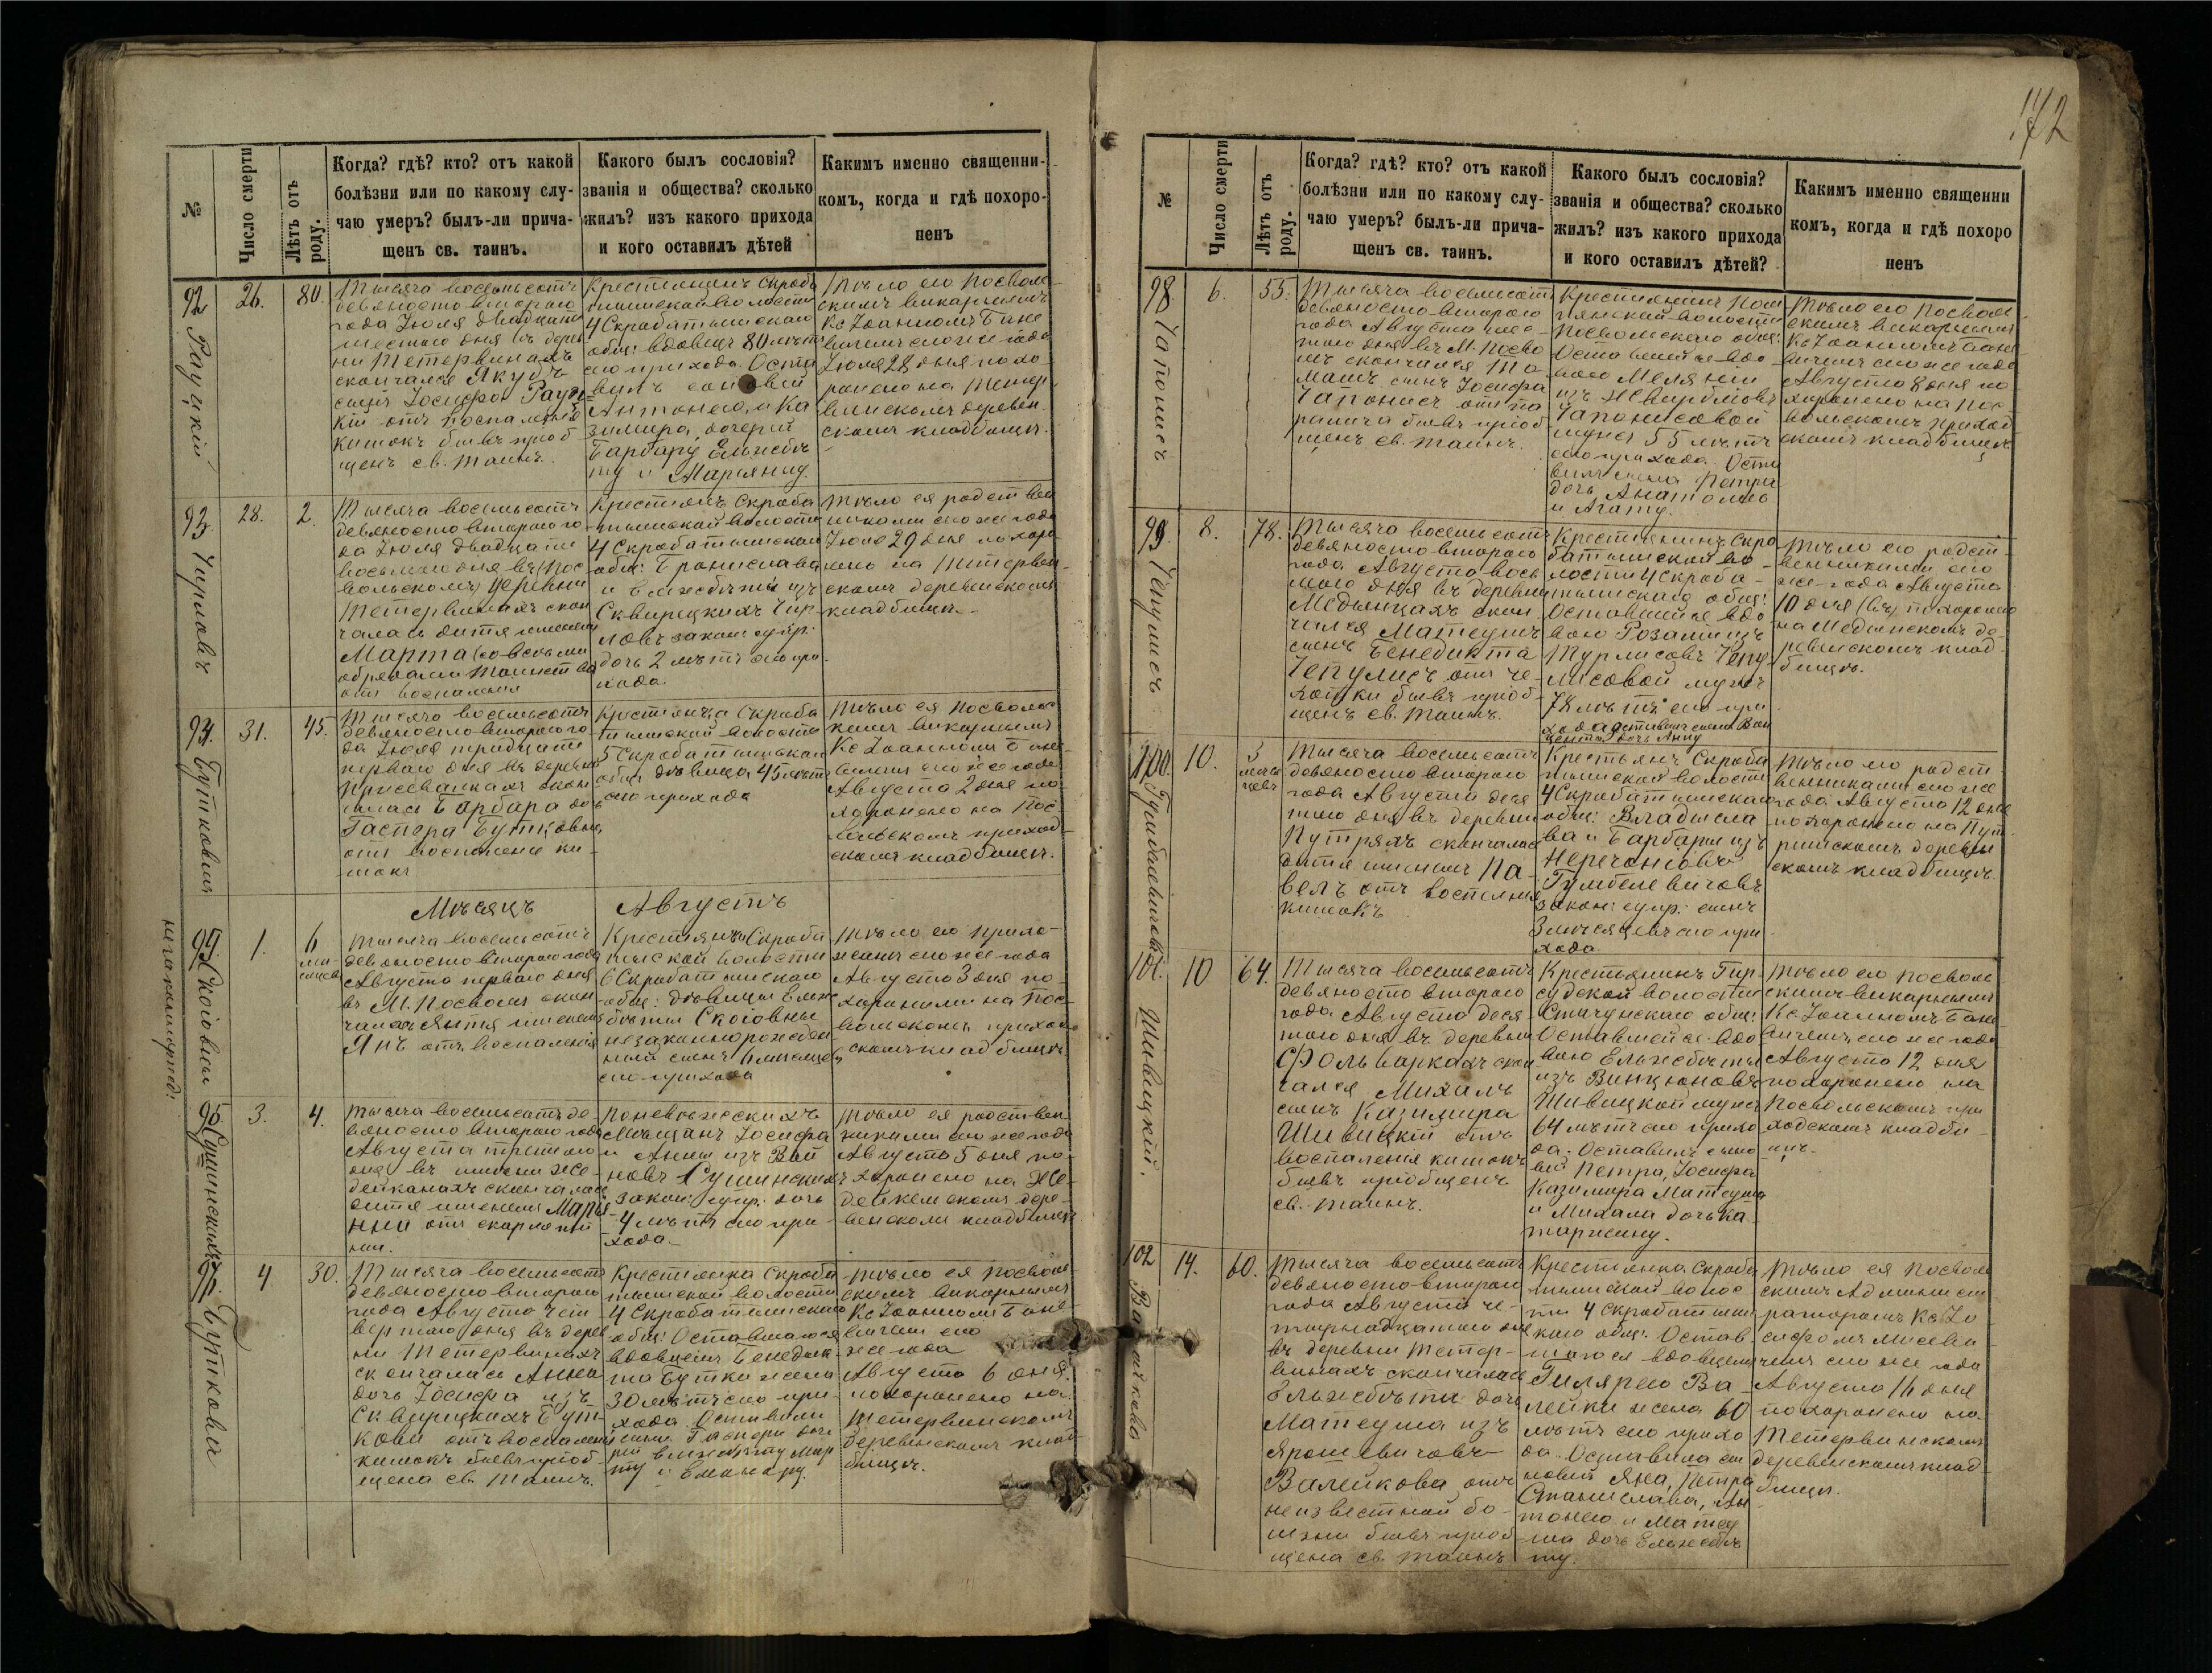 172
№
Число смерти
Лѣтъ отъ роду.
Когда? гдѣ? кто? отъ какой
болѣзни или по какому слу-
чаю умеръ? былъ-ли прича-
щенъ св. таинъ.
Какого былъ сословія?
званія и общества? сколько
жилъ? изъ какого прихода
и кого оставилъ дѣтей
Какимъ именно священни-
комъ, когда и гдѣ похоро-
ненъ
92
Рауцкій
26.
80.
Тысяча восемьсотъ
девяносто второго
года Іюля двадцать
шестого дня въ дерев
ни Тетервинахъ
скончался Якубъ
сынъ Іосифа Рауц-
кій отъ воспаленія
кишокъ бывъ пріоб
щенъ св. таинъ.
Крестьянинъ Скроба
тышской волости
4 Скробатышскаго
общ: вдовецъ 80 лѣтъ
сего прихода. Оста
вилъ сыновей
Антонего, и Ка
зимира, дочерей
Барбару Ельжебѣ
ту и Маріянну.
Тѣло его Посволь
скимъ викарнымъ
Кс Іоанномъ Бане
вичемъ сего же года
Іюля 28 дня похо
ронено на Тетер
винскомъ деревен
скомъ кладбищѣ.
93
28.
2.
Тысяча восемьсотъ
девяносто второго го
да Іюля двадцать
восьмого дня въ Пос
вольскомъ деревни
Тетервинахъ скон
чалась дитя именемъ
Марта со всѣми
обрядами Таинства
отъ воспаленія
Крестьянъ Скроба
тышской волости
4 Скробатышскаго
общ: Бронислава
и Ельжбѣты изъ
Сквирецкихъ Чир
ловъ закон: супр.
дочь 2 лѣтъ сего при
хода.
Тѣло ея родствен
никами сего же года
Іюля 29 дня похоро
нено на Тетервин
скомъ деревенскомъ
кладбищѣ.
94.
Бутковна
31.
45.
Тысяча восемьсотъ
девяносто второго го
да Іюля тридцать
перваго дня въ деревни
скон
чалась Барбара дочь
Гаспера Бутковна
отъ воспаленія ки
шокъ
Крестьянка Скроба
тышской волости
5 Скробатышскаго
общ: дѣвица 45 лѣтъ
сего прихода
Тѣло ея Посволь
скимъ викарнымъ
Кс Іоанномъ Бане
вичемъ сего же года
Августа 2 дня по
хоронено на Пос
вольскомъ приход
скомъ кладбищѣ.
Мѣсяцъ Августъ
95.
Скоіовны
незаконорожд:
1.
6
мѣ-
сяцевъ
Тысяча восемьсотъ
девяносто второго года
Августа перваго дня
въ М. Посволѣ скон
чалась дитя именемъ
Янъ отъ воспаленія
Крестьянки Скроба
тышской волости
6 Скробатышскаго
общ: дѣвицы Ельже
бѣты Скоіовны
незаконнорожден
ный сынъ 6 мѣсяцевъ
сего прихода
Тѣло его прихо-
жане сего же года
Августа 3 дня по-
хоронили на Пос-
вольскомъ приход
скомъ кладбищѣ.
96
Сушинскихъ
3.
4.
Тысяча восемьсотъ де
вяносто второго года
Августа третьяго
дня въ имѣніи Же-
дейканахъ скончалась
дитя именемъ Марь
янна отъ скарлати
ны.
Поневѣжескихъ
Мѣщанъ Іосифа
и Анны изъ Вой
новъ Сушинскихъ
закон: супр. дочь
4 лѣтъ сего при-
хода.
Тѣло ея родствен
никами сего же года
Августа 5 дня по-
хоронено на Же-
дейканскомъ дере-
венскомъ кладбищѣ
97.
Буткова
4
30.
Тысяча восемьсотъ
девяносто второго
года Августа чет
вертого дня въ дерев
ни Тетервинахъ
скончалась Анна
дочь Іосифа изъ
Сквирецкихъ Бут
кова отъ воспаленія
кишокъ бывъ пріоб
щена св. таинъ.
Крестьянка Скроба
тышской волости
4 Скробатышскаго
общ: Оставшагося
вдовцемъ Бенедык
та Бутки жена
30 лѣтъ сего при-
хода. Оставила
сына Гаспера доче
рей Ельжбѣту Мар
ту и Елеонору.
Тѣло ея Посволь
скимъ викарнымъ
Кс Іоанномъ Бане-
вичемъ сего
же года
Августа 6 дня.
похоронено на
Тетервинскомъ
деревенскомъ клад
бищѣ.
№
Число смерти
Лѣтъ отъ роду.
Когда? гдѣ? кто? отъ какой
болѣзни или по какому слу-
чаю умеръ? былъ-ли прича-
щенъ св. таинъ.
Какого былъ сословія?
званія и общества? сколько
жилъ? изъ какого прихода
и кого оставилъ дѣтей?
Какимъ именно священни
комъ, когда и гдѣ похоро
ненъ
98.
Чапонисъ
6.
55.
Тысяча восемьсотъ
девяносто второго
года Августа шес-
того дня въ М. Посво
лѣ скончался То
машъ сынъ Іосифа
Чапонисъ отъ па
ралича бывъ пріоб
щенъ св. таинъ.
Крестьянинъ
волости
Посвольскаго общ:
Оставшейся вдо
вою Меляніи
изъ
Чапонисовой
мужъ 55 лѣтъ
сего прихода. Оста
вилъ сына Петра
дочь Анатолію
и Агату.
Тѣло его Посволь
скимъ викарнымъ
Кс Іоанномъ Бане
вичемъ сего же года
Августа 8 дня по
хоронено на Пос
вольскомъ приход
скомъ кладбищѣ
99.
Чепулисъ
8.
78.
Тысяча восемьсотъ
девяносто второго
года Августа вось
мого дня въ деревни
Медынцахъ скон
чался Матеушъ
сынъ Бенедикта
Чепулисъ отъ че-
хотки бывъ пріоб-
щенъ св. таинъ.
Крестьянинъ Скро
батышской во-
лости 4 Скроба-
тышскаго общ:
Оставшейся вдо
вою Розаліи изъ
Турлисовъ Чепу
лисовой мужъ
78 лѣтъ сего при
хода оставилъ сына Вин
центы дочь Анну
Тѣло его родст-
венниками сего
же года Августа
10 дня похоронено
на Медынскомъ де
ревенскомъ клад
бищѣ.
100.
Гумбалевичовъ
10.
3
мѣся
цевъ
Тысяча восемьсотъ
девяносто второго
года Августа деся
того дня въ деревни
Путряхъ скончалась
дитя именемъ Па-
велъ отъ воспаленія
кишокъ
Крестьянъ Скроба
тышской волости
4 Скробатышскаго
общ: Владисла
ва и Барбары изъ
Нерегоновъ
Гумбелевичовъ
закон: супр: сынъ
3 мѣсяцевъ сего при
хода.
Тѣло его родст
венниками сего же
года Августа 12 дня
похоронено на Пут
ришскомъ деревен
скомъ кладбищѣ.
101.
Шивицкій.
10
64.
Тысяча восемьсотъ
девяносто второго
года Августа деся
того дня въ деревни
Фольваркахъ скон
чался Михалъ
сынъ Казимира
Шивицкій отъ
воспаленія кишокъ
бывъ пріобщенъ
св. таинъ.
Крестьянинъ Гир
судской волости
общ:
Оставшейся вдо
вою Ельжебѣты
изъ Винцюновъ
Шивицкой мужъ
64 лѣтъ сего прихо
да. Оставилъ сыно
вей Петра, Іосифа
Казимира Матеуша
и Михала дочь Ка
таржину.
Тѣло его Посволь
скимъ викарнымъ
Кс. Іоанномъ Бане
вичемъ сего же года
Августа 12 дня
похоронено на
Посвольскомъ при
ходскомъ кладби-
щѣ.
102
14.
60.
Тысяча восемьсотъ
девяносто второго
года Августа че-
тырнадцатого дня
въ деревни Тетер-
винахъ скончалась
Ельжебѣта дочь
Матеуша изъ
Ярошевичовъ
Валейкова отъ
неизвестной бо-
лѣзни бывъ пріоб
щена св. таинъ
Крестьянка Скроба
тышской волос
ти 4 Скробатыш
скаго общ. Остав-
шагося вдовцемъ
Гиляргего Ва-
лейки жена 60
лѣтъ сего прихо
да. Оставила сы
новей Яна, Петра
Станислава, Ан
тонего и Матеу
ша дочь Ельжебѣ
ту.
Тѣло ея Посволь
скимъ Админист
раторомъ Кс Іо
сифомъ Мисеви
чемъ сего же года
Августа 16 дня
похоронено на
Тетервинскомъ
деревенскомъ клад
бищѣ.